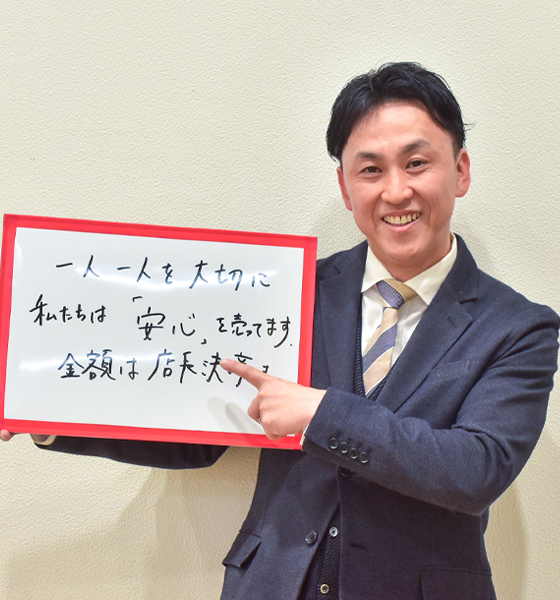 一人一人を大切に
私たちは「安心」を売ってます.
金額は店長決済